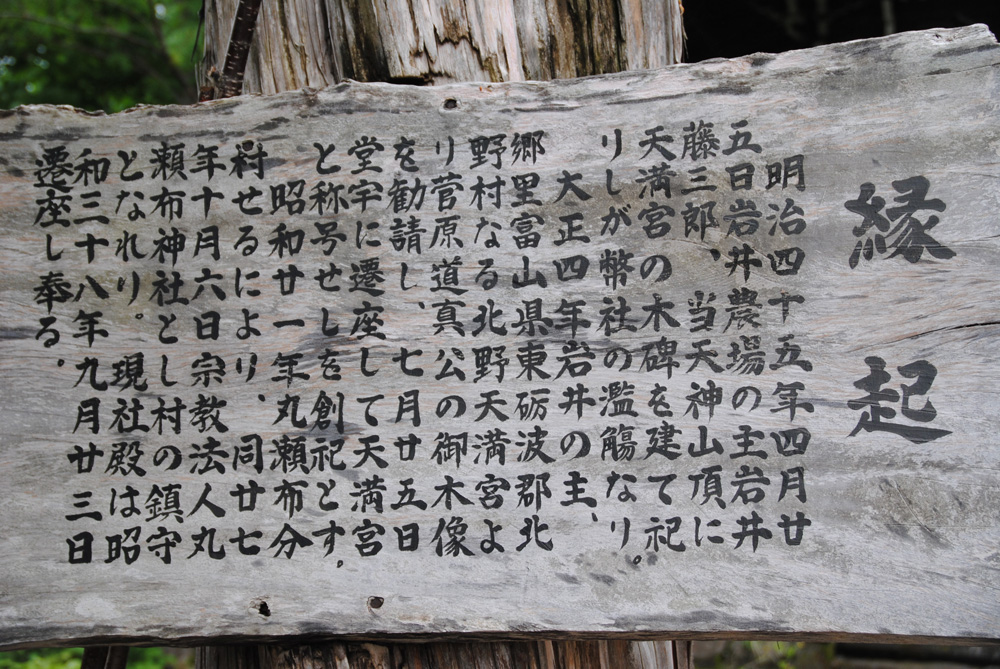 縁起
明治四十五年四月廿
五日岩井農場の主岩井
藤三郎、当天神山頂に
天満宮の木碑を建て祀
りしが幣社の濫觴なり。
大正四年岩井の主、
郷里富山県東砺波郡北
野村なる北野天満宮よ
り菅原道真公の御木像
を勧請し、七月廿五日
堂宇に遷座して天満宮
と称号せしを創祀とす。
昭和廿一年丸瀬布分
村せるにより、同廿七
年十月六日宗教法人丸
瀬布神社とし村の鎮守
となれり。現社殿は昭
和三十八年九月廿三日
遷座し奉る。